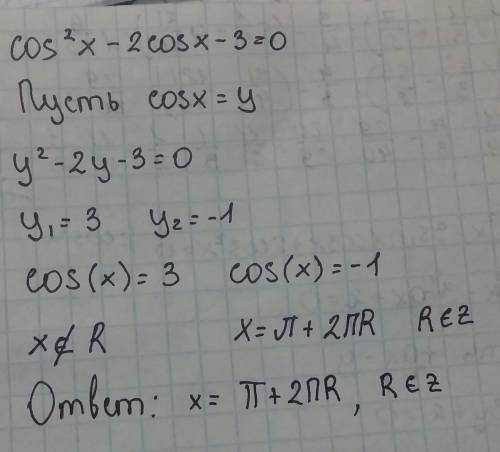 cos²x - 2cosx - 3 = 0
Пусть cosx = y
y² - 2y - 3 = 0
y₁ = 3 y₂ = -1
cos(x) = 3 cos(x) = -1
x ∉ R x = π + 2πR R ∈ Z
Ответ: x = π + 2πR, R ∈ Z